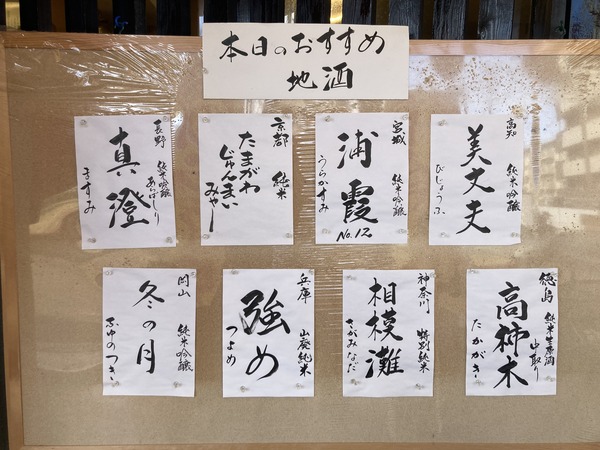 本日のおすすめ
地酒
高知 純米吟醸
美丈夫
びじょうふ
宮城 純米吟醸
浦霞
No.12
うらかすみ
京都 純米
たまがわ
じゅんまい
長野 純米吟醸
あらばしり
真澄
ますみ
徳島 純米生原酒
中取り
高柿木
たかがき
神奈川 特別純米
相模灘
さがみなだ
兵庫 山廃純米
強め
つよめ
岡山 純米吟醸
冬の月
ふゆのつき